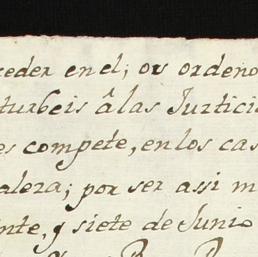 ceder en el; os ordeno
turbeis â las Justicia
es compete, en los cas
aleza; por ser assi m
inte, y siete de Junio